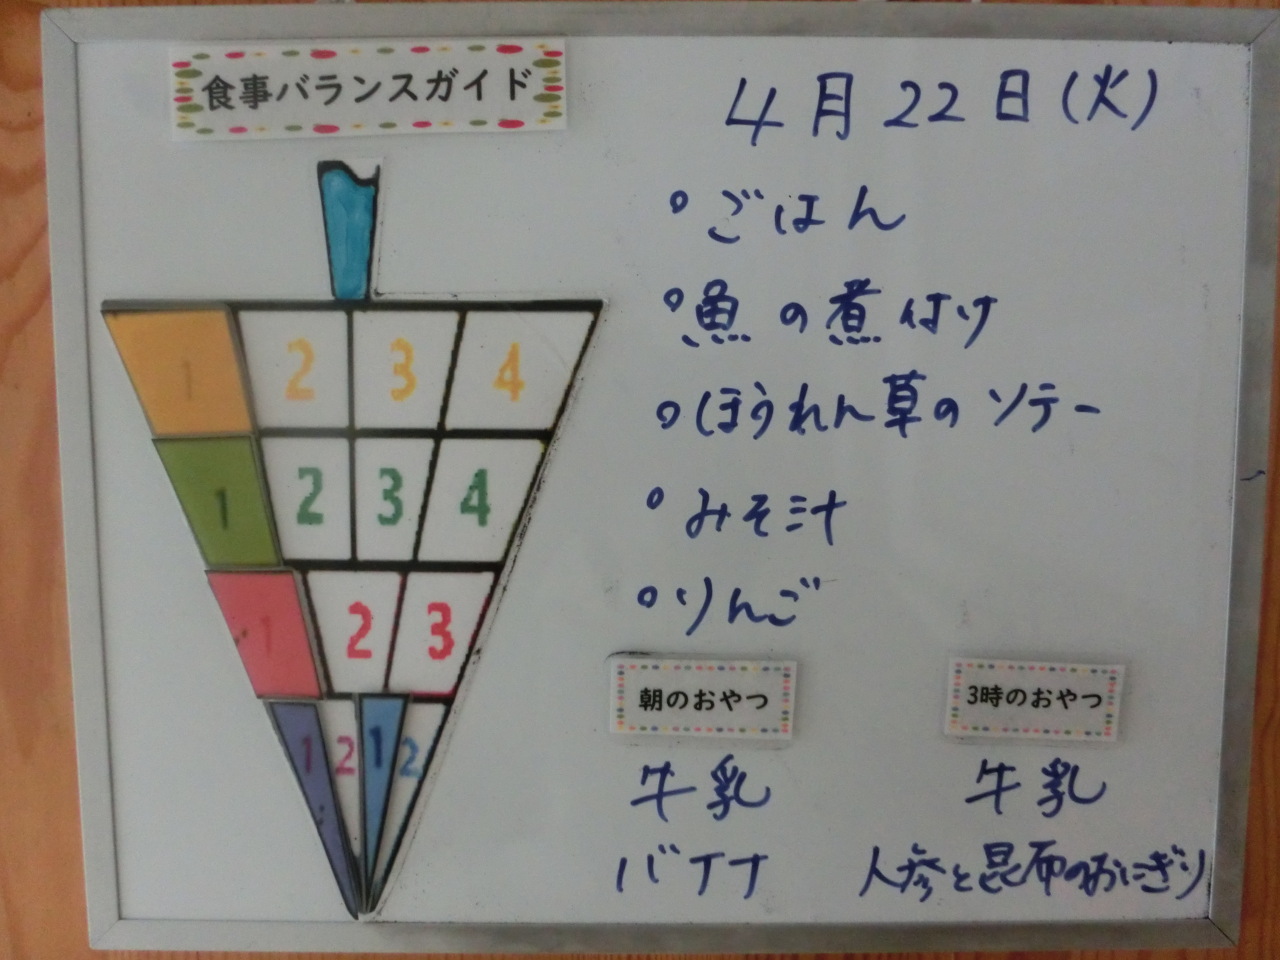 食事バランスガイド
4月22日(火)
ごはん
魚の煮付け
ほうれん草のソテー
みそ汁
りんご
1 2 3 4
1 2 3 4
1 2 3
1 2 1 2
朝のおやつ
牛乳
バナナ
3時のおやつ
牛乳
人参と昆布のおにぎり